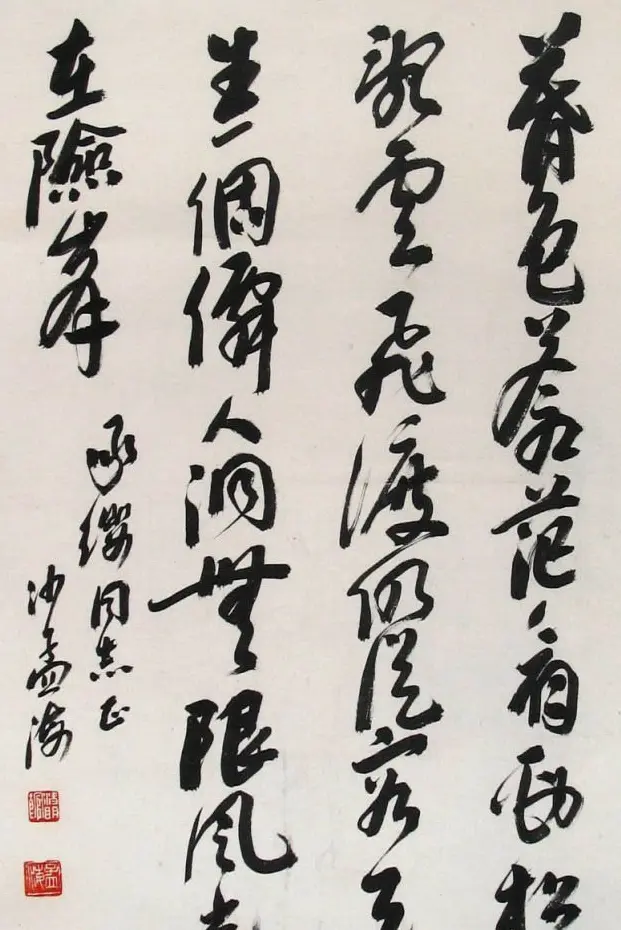 暮色蒼茫看勁松
亂雲飛渡仍從容天
生一個僊人洞無限風光
在險峯
同志正
沙孟海
孟海